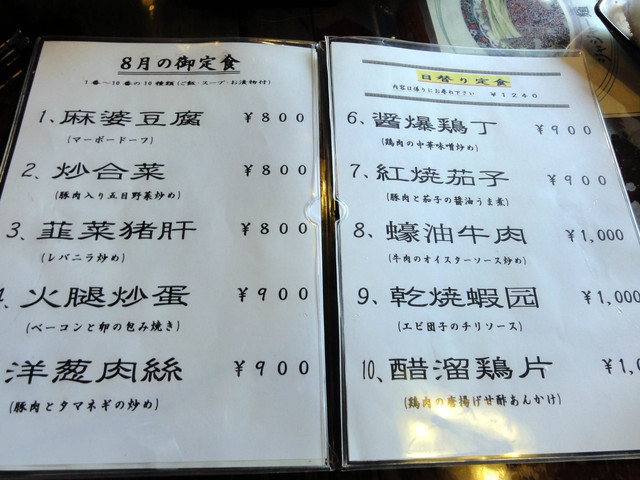 8月の御定食
1番〜10番の10種類(ご飯・スープ・お漬物付)
1、麻婆豆腐 ￥800
(マーボードーフ)
2、炒合菜 ￥800
(豚肉入り五目野菜炒め)
3、韮菜猪肝 ￥800
(レバニラ炒め)
、火腿炒蛋 ￥900
(ベーコンと卵の包み焼き)
洋葱肉絲 ￥900
(豚肉とタマネギの炒め)
日替り定食
内容は係りにお尋ね下さい ￥1240
6、醤爆鶏丁 ￥900
(鶏肉の中華味噌炒め)
7、紅焼茄子 ￥900
(豚肉と茄子の醤油うま煮)
8、蠔油牛肉 ￥1,000
(牛肉のオイスターソース炒め)
9、乾焼蝦园 ￥1,000
(エビ団子のチリソース)
10、醋溜鶏片 ￥1,0
(鶏肉の唐揚げ甘酢あんかけ)